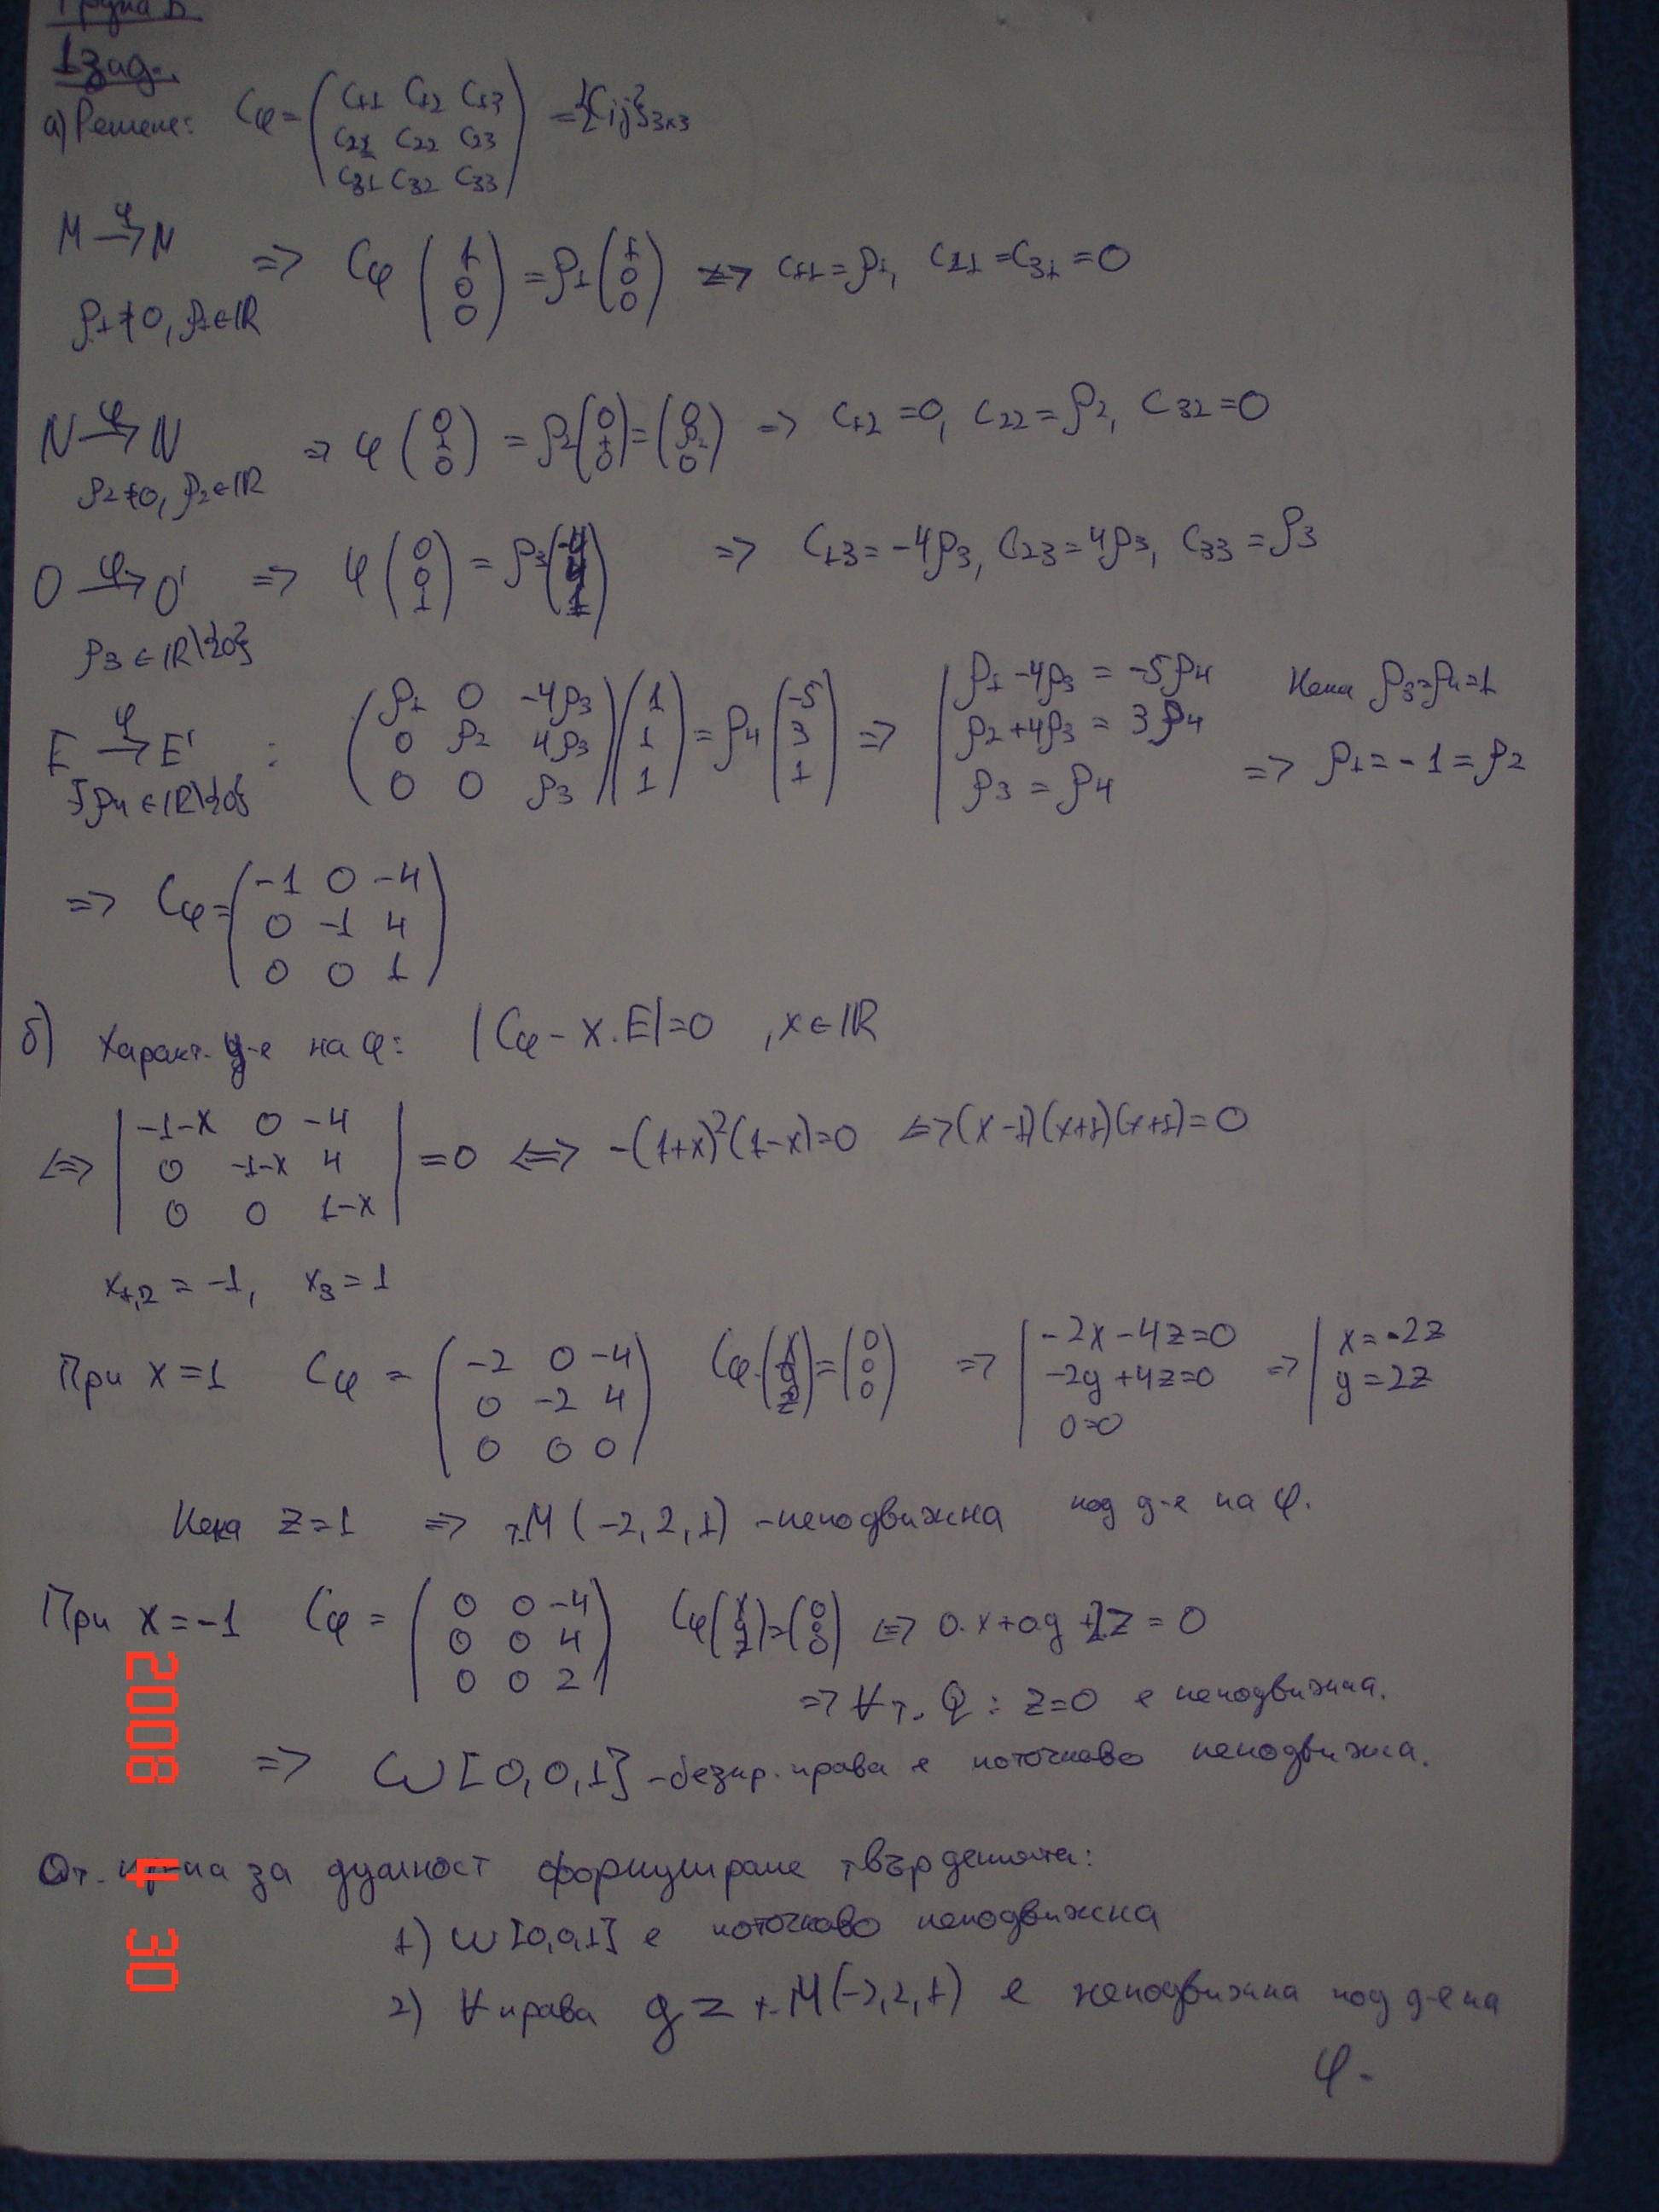 Група В
1 зад.
а) Решение: Cφ = (c11 c12 c13; c21 c22 c23; c31 c32 c33) = {Cij}3x3
M →φ N => Cφ (1; 0; 0) = ρ1 (1; 0; 0) <=> c11 = ρ1, c21 = c31 = 0
ρ1 ≠ 0, ρ1 ∈ IR
N →φ N => φ (0; 1; 0) = ρ2 (0; 1; 0) = (0; ρ2; 0) => c12 = 0, c22 = ρ2, c32 = 0
ρ2 ≠ 0, ρ2 ∈ IR
O →φ O' => φ (0; 0; 1) = ρ3 (-4; 4; 1) => c13 = -4ρ3, c23 = 4ρ3, c33 = ρ3
ρ3 ∈ IR\{0}
E →φ E' : (ρ1 0 -4ρ3; 0 ρ2 4ρ3; 0 0 ρ3) (1; 1; 1) = ρ4 (-5; 3; 1) => | ρ1 - 4ρ3 = -5ρ4; ρ2 + 4ρ3 = 3ρ4; ρ3 = ρ4 Нека ρ3 = ρ4 = 1
ρ4 ∈ IR\{0} => ρ1 = -1 = ρ2
=> Cφ = (-1 0 -4; 0 -1 4; 0 0 1)
б) Характ. у-е на φ: |Cφ - x.E| = 0 , x ∈ IR
<=> |-1-x 0 -4; 0 -1-x 4; 0 0 1-x| = 0 <=> -(1+x)²(1-x) = 0 <=> (x-1)(x+1)(x+1) = 0
x1,2 = -1, x3 = 1
При x = 1 Cφ = (-2 0 -4; 0 -2 4; 0 0 0) Cφ.(x; y; z) = (0; 0; 0) => | -2x - 4z = 0; -2y + 4z = 0; 0 = 0 => | x = -2z; y = 2z
Нека z = 1 => т.M (-2, 2, 1) - неподвижна под д-е на φ.
При x = -1 Cφ = (0 0 -4; 0 0 4; 0 0 2) Cφ (x; y; z) = (0; 0; 0) <=> 0.x + 0y + 2z = 0
=> ∀ т. Q : z = 0 е неподвижна.
=> ω [0, 0, 1] - безкр. права е поточково неподвижна.
От за дуалност формулираме твърденията:
1) ω [0,0,1] е поточково неподвижна
2) ∀ права g z т. M (-2, 2, 1) е неподвижна под д-е на
φ.
2008 4 30